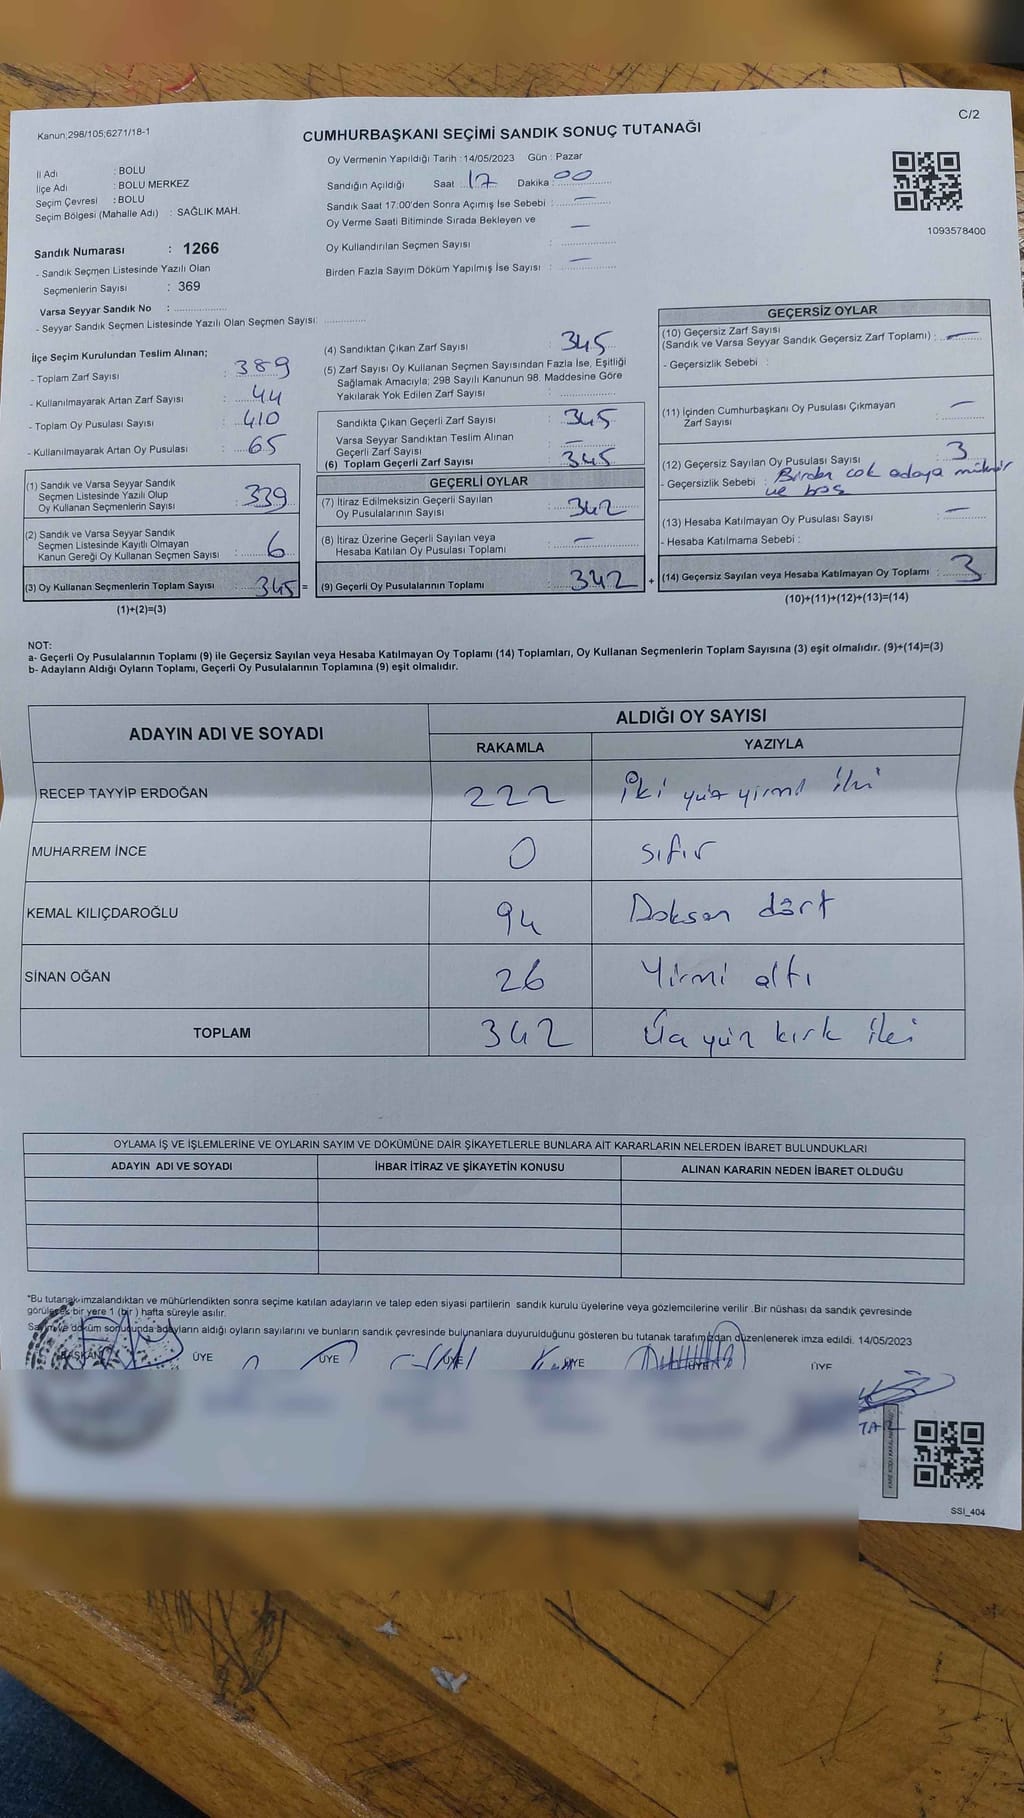 C/2
Kanun:298/105;6271/18-1
CUMHURBAŞKANI SEÇİMİ SANDIK SONUÇ TUTANAĞI
Oy Vermenin Yapıldığı Tarih : 14/05/2023 Gün : Pazar
İl Adı : BOLU
İlçe Adı : BOLU MERKEZ
Seçim Çevresi : BOLU
Seçim Bölgesi (Mahalle Adı) : SAĞLIK MAH.
Sandık Numarası : 1266
- Sandık Seçmen Listesinde Yazılı Olan
Seçmenlerin Sayısı : 369
Varsa Seyyar Sandık No :
- Seyyar Sandık Seçmen Listesinde Yazılı Olan Seçmen Sayısı:
Sandığın Açıldığı Saat 17 Dakika : 00
Sandık Saat 17:00'den Sonra Açımış İse Sebebi : —
Oy Verme Saati Bitiminde Sırada Bekleyen ve
Oy Kullandırılan Seçmen Sayısı : —
Birden Fazla Sayım Döküm Yapılmış İse Sayısı : —
1093578400
İlçe Seçim Kurulundan Teslim Alınan;
- Toplam Zarf Sayısı : 389
- Kullanılmayarak Artan Zarf Sayısı : 44
- Toplam Oy Pusulası Sayısı : 410
- Kullanılmayarak Artan Oy Pusulası : 65
(1) Sandık ve Varsa Seyyar Sandık
Seçmen Listesinde Yazılı Olup
Oy Kullanan Seçmenlerin Sayısı : 339
(2) Sandık ve Varsa Seyyar Sandık
Seçmen Listesinde Kayıtlı Olmayan
Kanun Gereği Oy Kullanan Seçmen Sayısı : 6
(3) Oy Kullanan Seçmenlerin Toplam Sayısı : 345 =
(1)+(2)=(3)
(4) Sandıktan Çıkan Zarf Sayısı : 345
(5) Zarf Sayısı Oy Kullanan Seçmen Sayısından Fazla İse, Eşitliği
Sağlamak Amacıyla; 298 Sayılı Kanunun 98. Maddesine Göre
Yakılarak Yok Edilen Zarf Sayısı :
Sandıkta Çıkan Geçerli Zarf Sayısı : 345
Varsa Seyyar Sandıktan Teslim Alınan
Geçerli Zarf Sayısı : —
(6) Toplam Geçerli Zarf Sayısı : 345
GEÇERLİ OYLAR
(7) İtiraz Edilmeksizin Geçerli Sayılan
Oy Pusulalarının Sayısı : 342
(8) İtiraz Üzerine Geçerli Sayılan veya
Hesaba Katılan Oy Pusulası Toplamı : —
(9) Geçerli Oy Pusulalarının Toplamı : 342 +
GEÇERSİZ OYLAR
(10) Geçersiz Zarf Sayısı
(Sandık ve Varsa Seyyar Sandık Geçersiz Zarf Toplamı) : —
- Geçersizlik Sebebi :
(11) İçinden Cumhurbaşkanı Oy Pusulası Çıkmayan
Zarf Sayısı : —
(12) Geçersiz Sayılan Oy Pusulası Sayısı : 3
- Geçersizlik Sebebi : Birden çok adaya mühür
ve boş
(13) Hesaba Katılmayan Oy Pusulası Sayısı : —
- Hesaba Katılmama Sebebi :
(14) Geçersiz Sayılan veya Hesaba Katılmayan Oy Toplamı : 3
(10)+(11)+(12)+(13)=(14)
NOT:
a- Geçerli Oy Pusulalarının Toplamı (9) ile Geçersiz Sayılan veya Hesaba Katılmayan Oy Toplamı (14) Toplamları, Oy Kullanan Seçmenlerin Toplam Sayısına (3) eşit olmalıdır. (9)+(14)=(3)
b- Adayların Aldığı Oyların Toplamı, Geçerli Oy Pusulalarının Toplamına (9) eşit olmalıdır.
ADAYIN ADI VE SOYADI ALDIĞI OY SAYISI
RAKAMLA YAZIYLA
RECEP TAYYİP ERDOĞAN 222 İki yüz yirmi iki
MUHARREM İNCE 0 sıfır
KEMAL KILIÇDAROĞLU 94 Doksan dört
SİNAN OĞAN 26 Yirmi altı
TOPLAM 342 Üç yüz kırk iki
OYLAMA İŞ VE İŞLEMLERİNE VE OYLARIN SAYIM VE DÖKÜMÜNE DAİR ŞİKAYETLERLE BUNLARA AİT KARARLARIN NELERDEN İBARET BULUNDUKLARI
ADAYIN ADI VE SOYADI İHBAR İTİRAZ VE ŞİKAYETİN KONUSU ALINAN KARARIN NEDEN İBARET OLDUĞU
*Bu tutanak imzalandıktan ve mühürlendikten sonra seçime katılan adayların ve talep eden siyasi partilerin sandık kurulu üyelerine veya gözlemcilerine verilir .Bir nüshası da sandık çevresinde
görülecek bir yere 1 (bir ) hafta süreyle asılır.
Sayım ve döküm sonucunda adayların aldığı oyların sayılarını ve bunların sandık çevresinde bulunanlara duyurulduğunu gösteren bu tutanak tarafımızdan düzenlenerek imza edildi. 14/05/2023
BAŞKAN ÜYE ÜYE ÜYE ÜYE ÜYE ÜYE
SSI_404